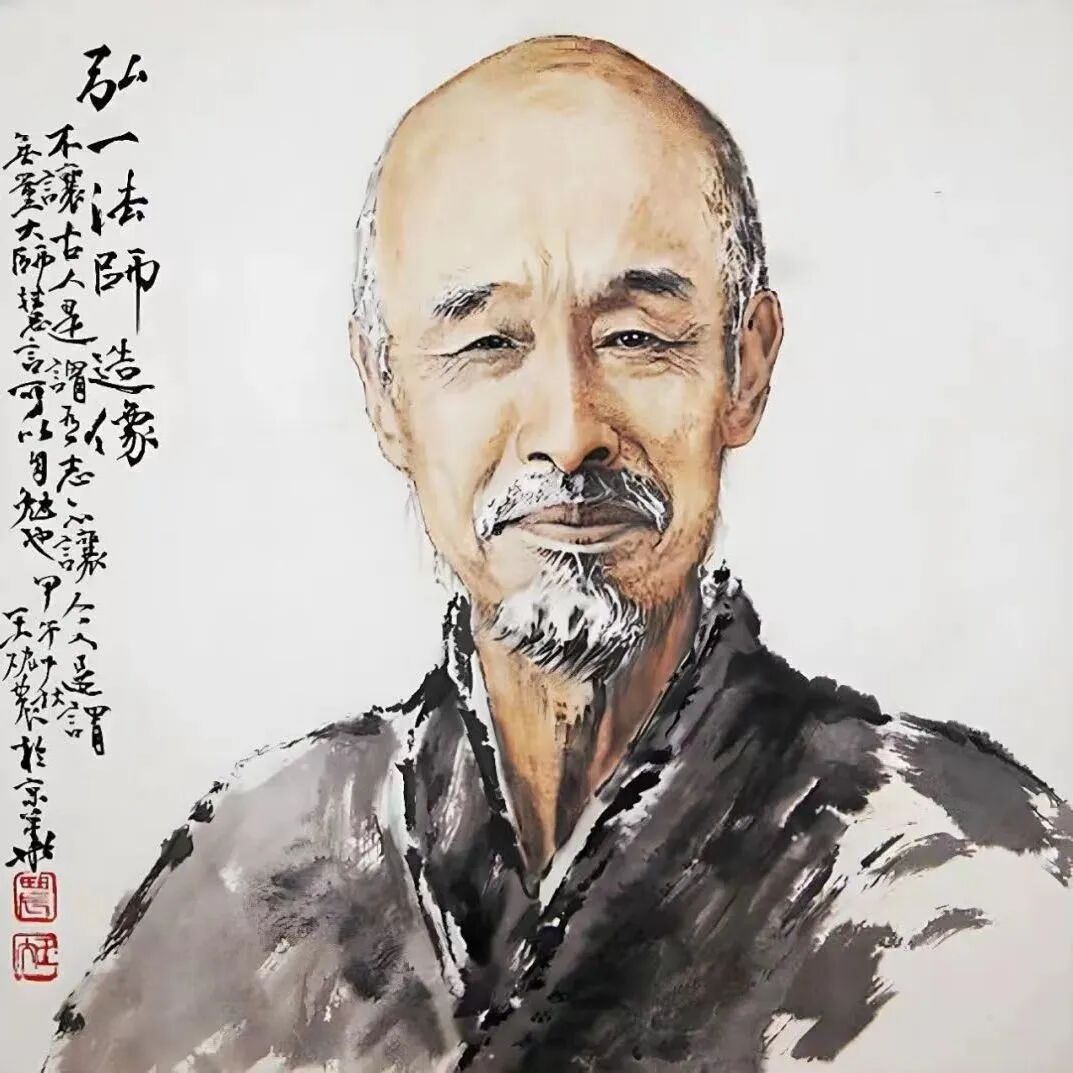 弘一法師造像
不讓古人是謂有志不讓今人是謂
無量大師慧言可以自勉也甲午秋
吴砚農於京華
農